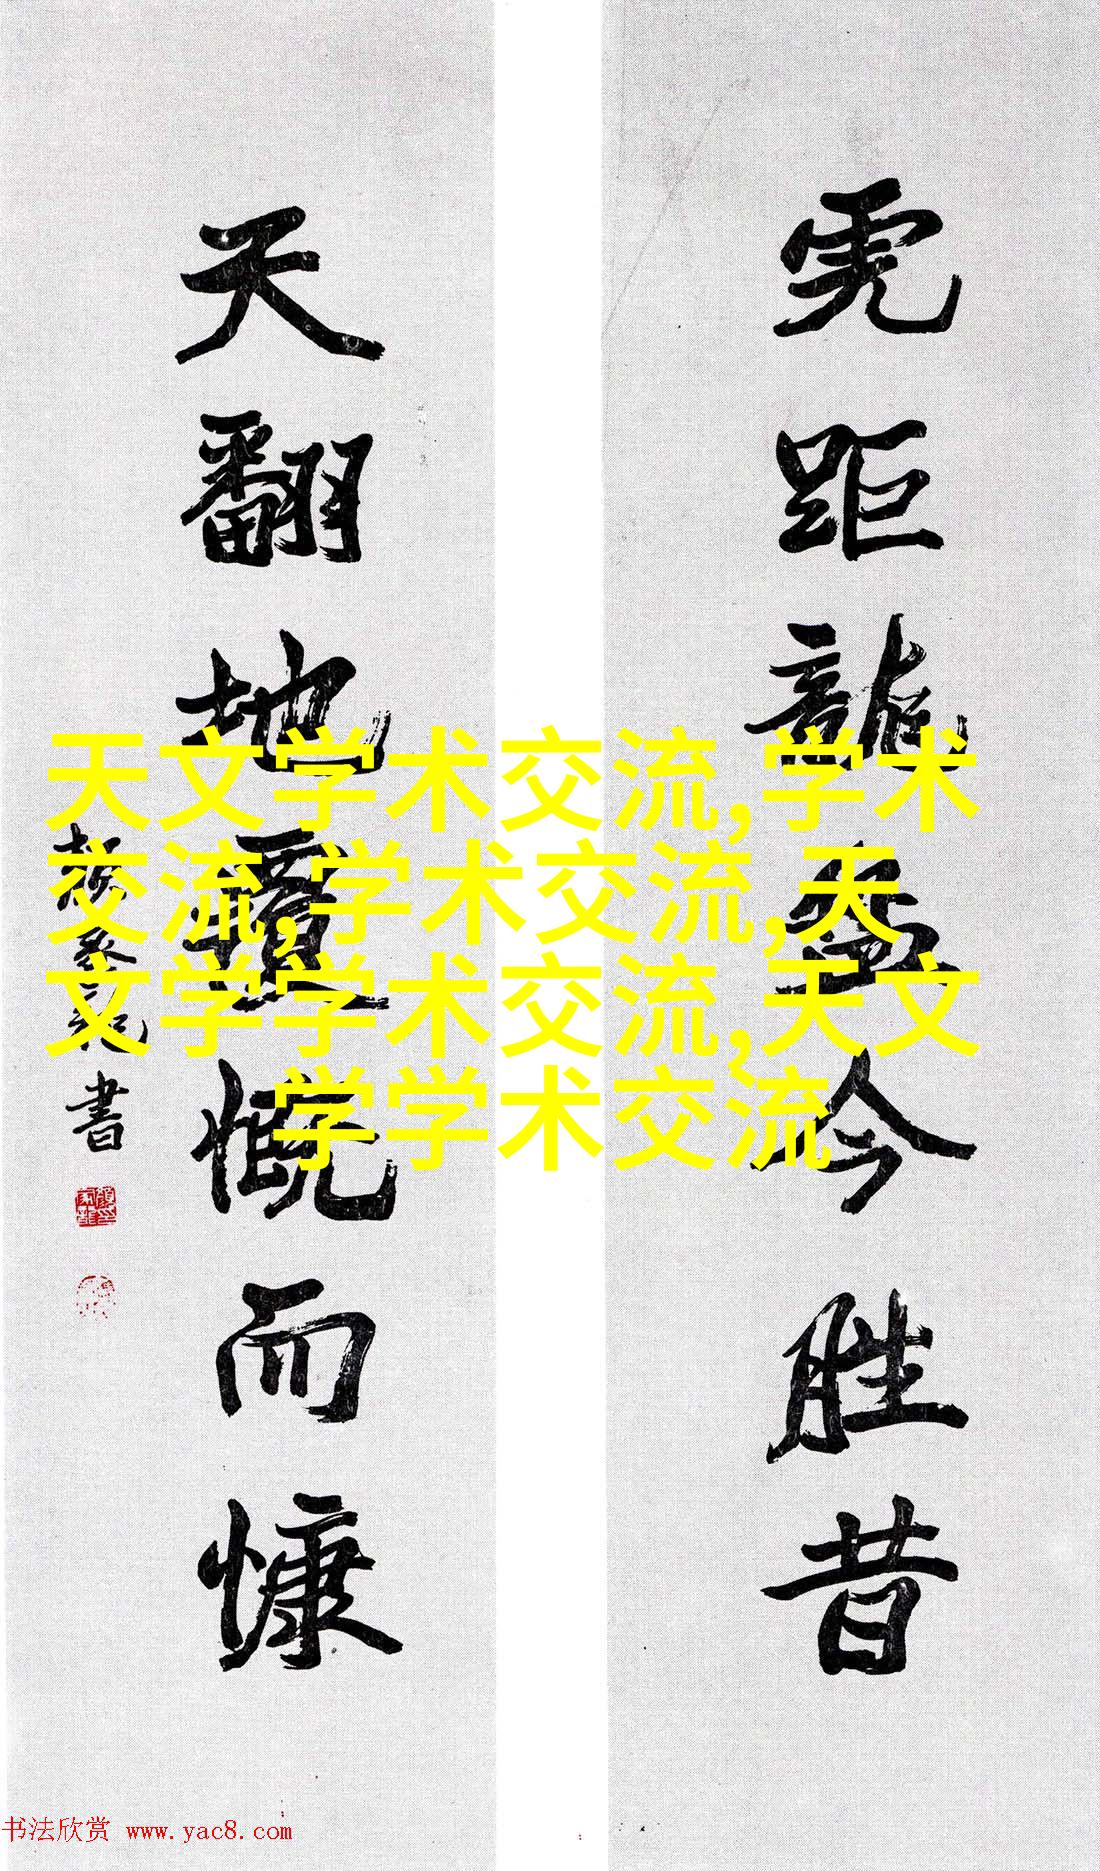 虎距龍盘今胜昔
天翻地覆慨而慷
書
天文学术交流,学术
交流,学术交流,天
文学学术交流,天文
学学术交流
书法欣赏 www.yac8.com